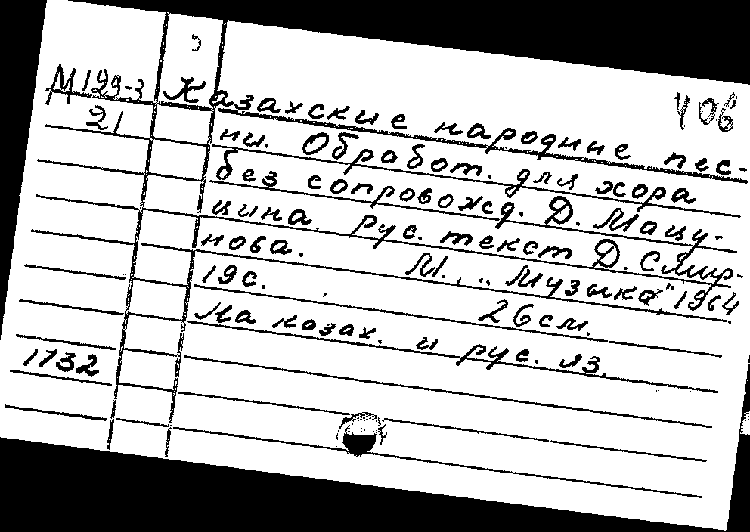 М129-3 Казахские народные пес-
21 ни. Обработ. для хора
без сопровожд. Д. Мацу-
цина. Рус. текст Д. Смир-
нова. М., „Музыка", 1964
19с. 26см.
На казах. и рус. яз.
1132
406